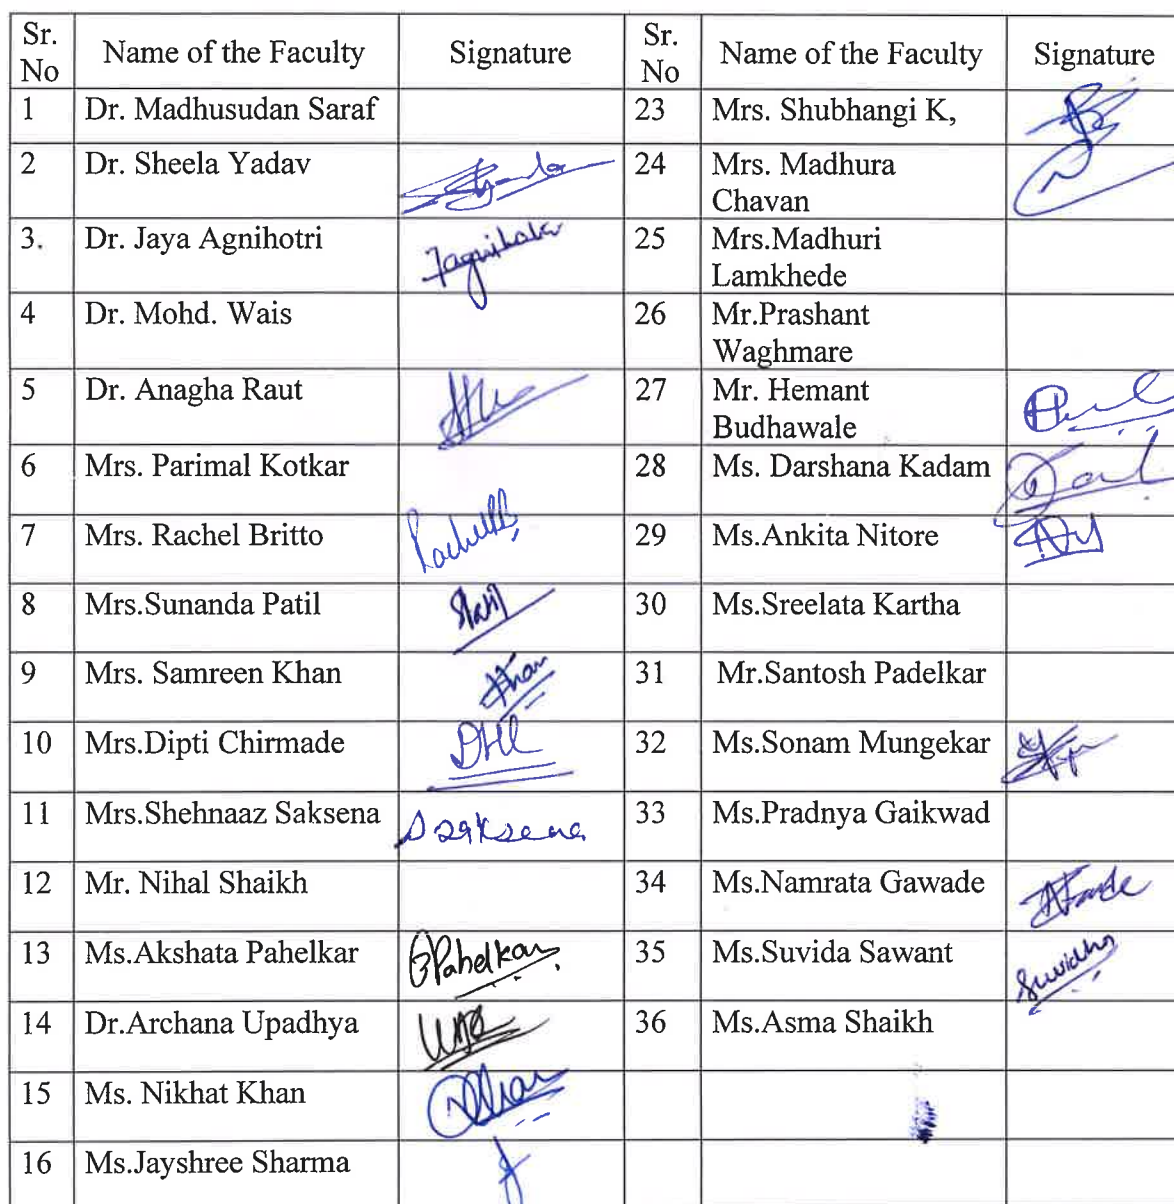 Sr. No Name of the Faculty Signature Sr. No Name of the Faculty Signature
1 Dr. Madhusudan Saraf 23 Mrs. Shubhangi K,
2 Dr. Sheela Yadav 24 Mrs. Madhura Chavan
3. Dr. Jaya Agnihotri Jagnihotri 25 Mrs.Madhuri Lamkhede
4 Dr. Mohd. Wais 26 Mr.Prashant Waghmare
5 Dr. Anagha Raut 27 Mr. Hemant Budhawale
6 Mrs. Parimal Kotkar 28 Ms. Darshana Kadam
7 Mrs. Rachel Britto RachelB 29 Ms.Ankita Nitore
8 Mrs.Sunanda Patil SPatil 30 Ms.Sreelata Kartha
9 Mrs. Samreen Khan Khan 31 Mr.Santosh Padelkar
10 Mrs.Dipti Chirmade 32 Ms.Sonam Mungekar
11 Mrs.Shehnaaz Saksena Ssaksena 33 Ms.Pradnya Gaikwad
12 Mr. Nihal Shaikh 34 Ms.Namrata Gawade
13 Ms.Akshata Pahelkar Pahelkar 35 Ms.Suvida Sawant Suvidha
14 Dr.Archana Upadhya 36 Ms.Asma Shaikh
15 Ms. Nikhat Khan
16 Ms.Jayshree Sharma